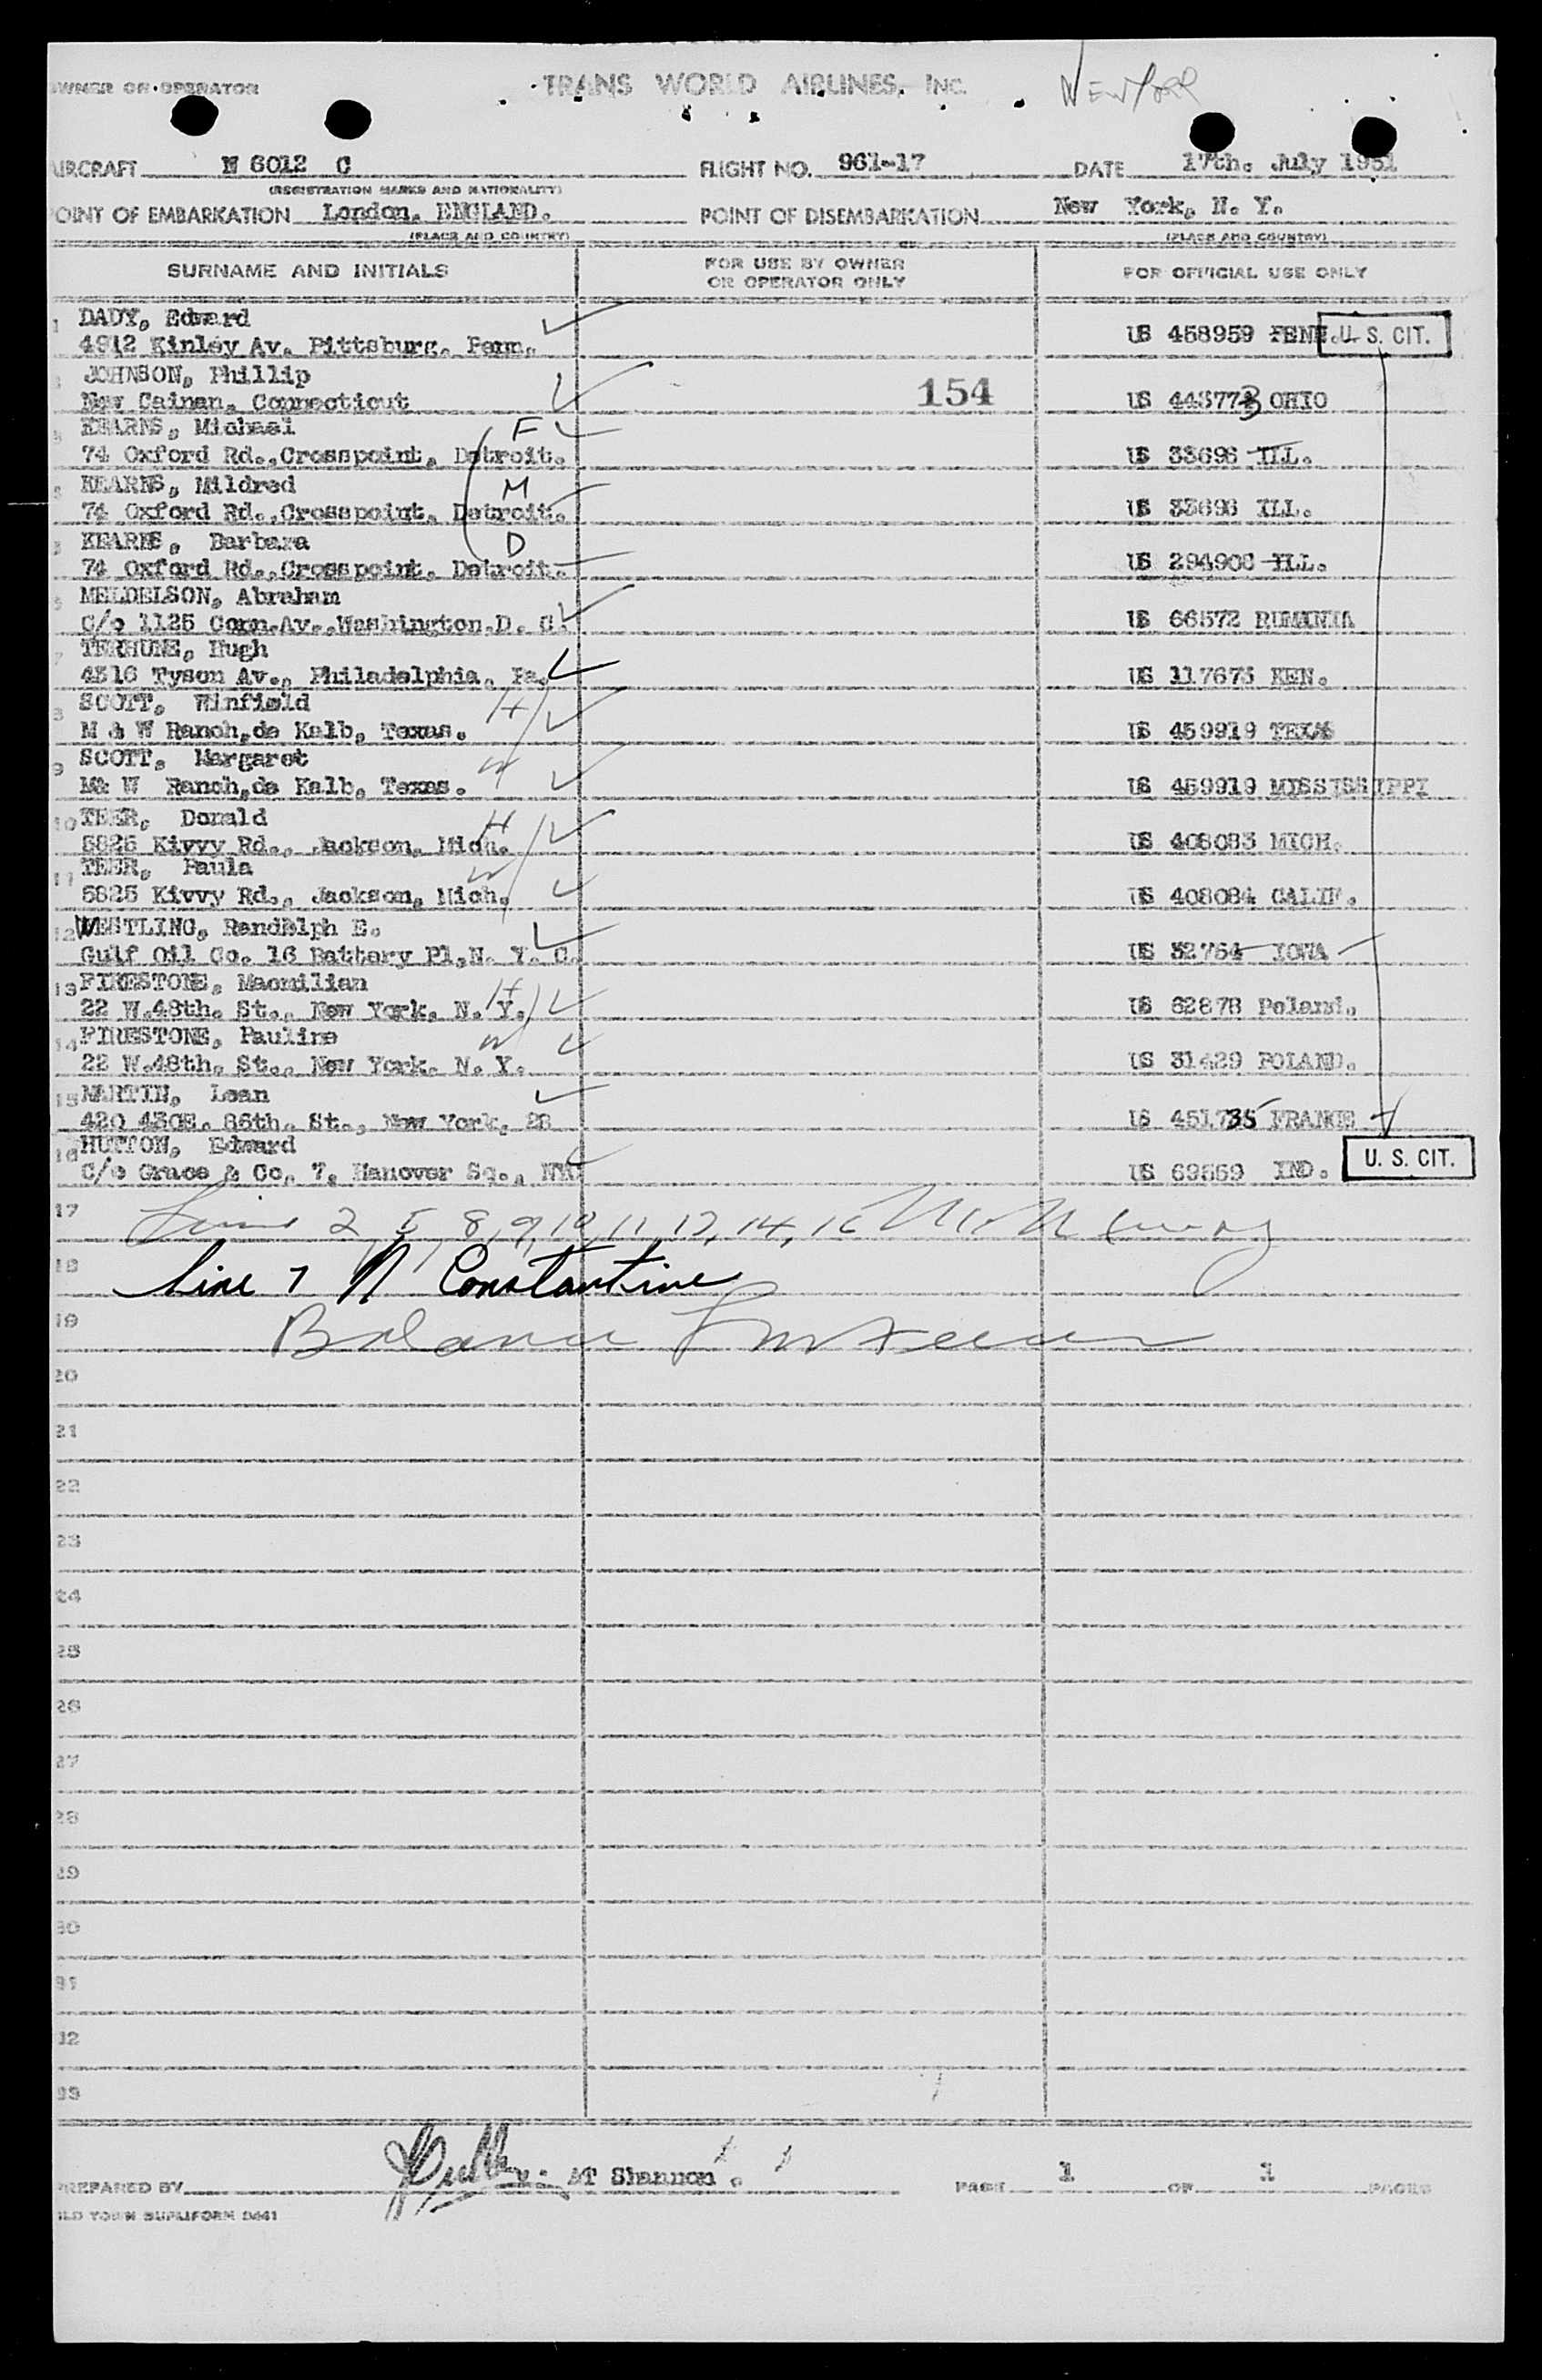 OWNER OR OPERATOR TRANS WORLD AIRLINES, INC. NEWYORK
AIRCRAFT N 6012 C FLIGHT NO. 961-17 DATE 17th. July 1951
(REGISTRATION MARKS AND NATIONALITY)
POINT OF EMBARKATION London. ENGLAND. POINT OF DISEMBARKATION New York, N. Y.
(PLACE AND COUNTRY) (PLACE AND COUNTRY)
SURNAME AND INITIALS FOR USE BY OWNER OR OPERATOR ONLY FOR OFFICIAL USE ONLY
1 DADY, Edward
4912 Kinley Av. Pittsburg. Penn. US 458959 PENN. U. S. CIT.
JOHNSON, Phillip
New Cainan, Connecticut 154 US 443773 OHIO
KEARNS, Michael F
74 Oxford Rd.,Crosspoint, Detroit. US 33696 ILL.
KEARNS, Mildred M
74 Oxford Rd.,Crosspoint, Detroit. US 33696 ILL.
KEARNS, Barbara D
74 Oxford Rd.,Crosspoint, Detroit. US 294906 ILL.
MELDELSON, Abraham
C/o 1125 Conn.Av.,Washington.D. C. US 66572 RUMANIA
7 TERHUNE, Hugh
4316 Tyson Av., Philadelphia, Pa. US 117673 KEN.
8 SCOTT, Winfield H
M & W Ranch,de Kalb, Texas. US 459919 TEXAS
9 SCOTT, Margaret W
M& W Ranch,de Kalb, Texas. US 459919 MISSISSIPPI
10 TEER, Donald H
5825 Kivvy Rd., Jackson, Mich. US 408083 MICH.
11 TEER, Paula W
5825 Kivvy Rd., Jackson, Mich. US 408084 CALIF.
12 WESTLING, Randolph E.
Gulf Oil Co. 16 Battery Pl,N. Y. C. US 32764 IOWA
13 FIRESTONE, Macmilian H
22 W.48th. St., New York, N. Y. US 62878 Poland.
14 FIRESTONE, Pauline W
22 W.48th. St., New York. N. Y. US 31429 POLAND.
15 MARTIN, Loan
420 430E. 86th. St., New York, 28 US 451735 FRANCE
16 HUTTON, Edward
C/o Grace & Co, 7, Hanover Sq., NY US 69559 IND. U. S. CIT.
17 Line 2, 5, 8, 9, 10, 11, 12, 14, 16
18 Line 7 N Constantine
19 Balance
20
21
22
23
24
25
26
27
28
29
30
31
32
33
PREPARED BY AT Shannon. PAGE 1 OF 1 PAGES